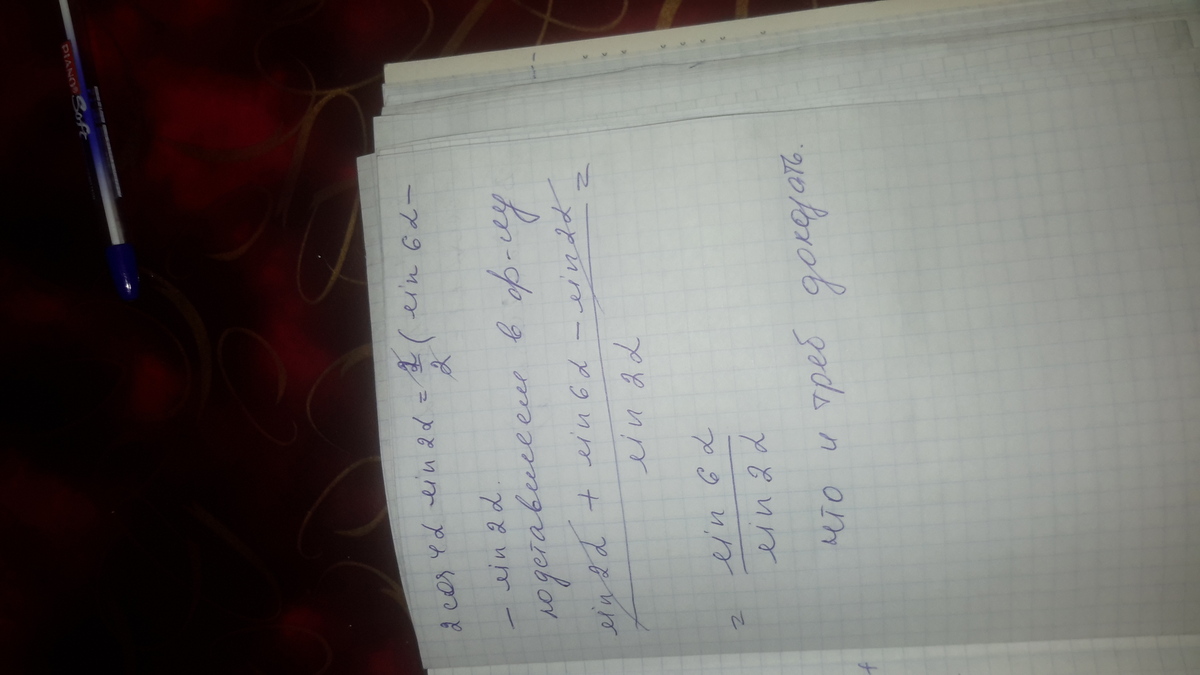 2 cos 4α sin 2α = 2/2 ( sin 6α –
– sin 2α.
подставляем в ф-лу
sin 2α + sin 6α – sin 2α =
sin 2α
= sin 6α
sin 2α
что и треб доказать.
PIANO
Soft